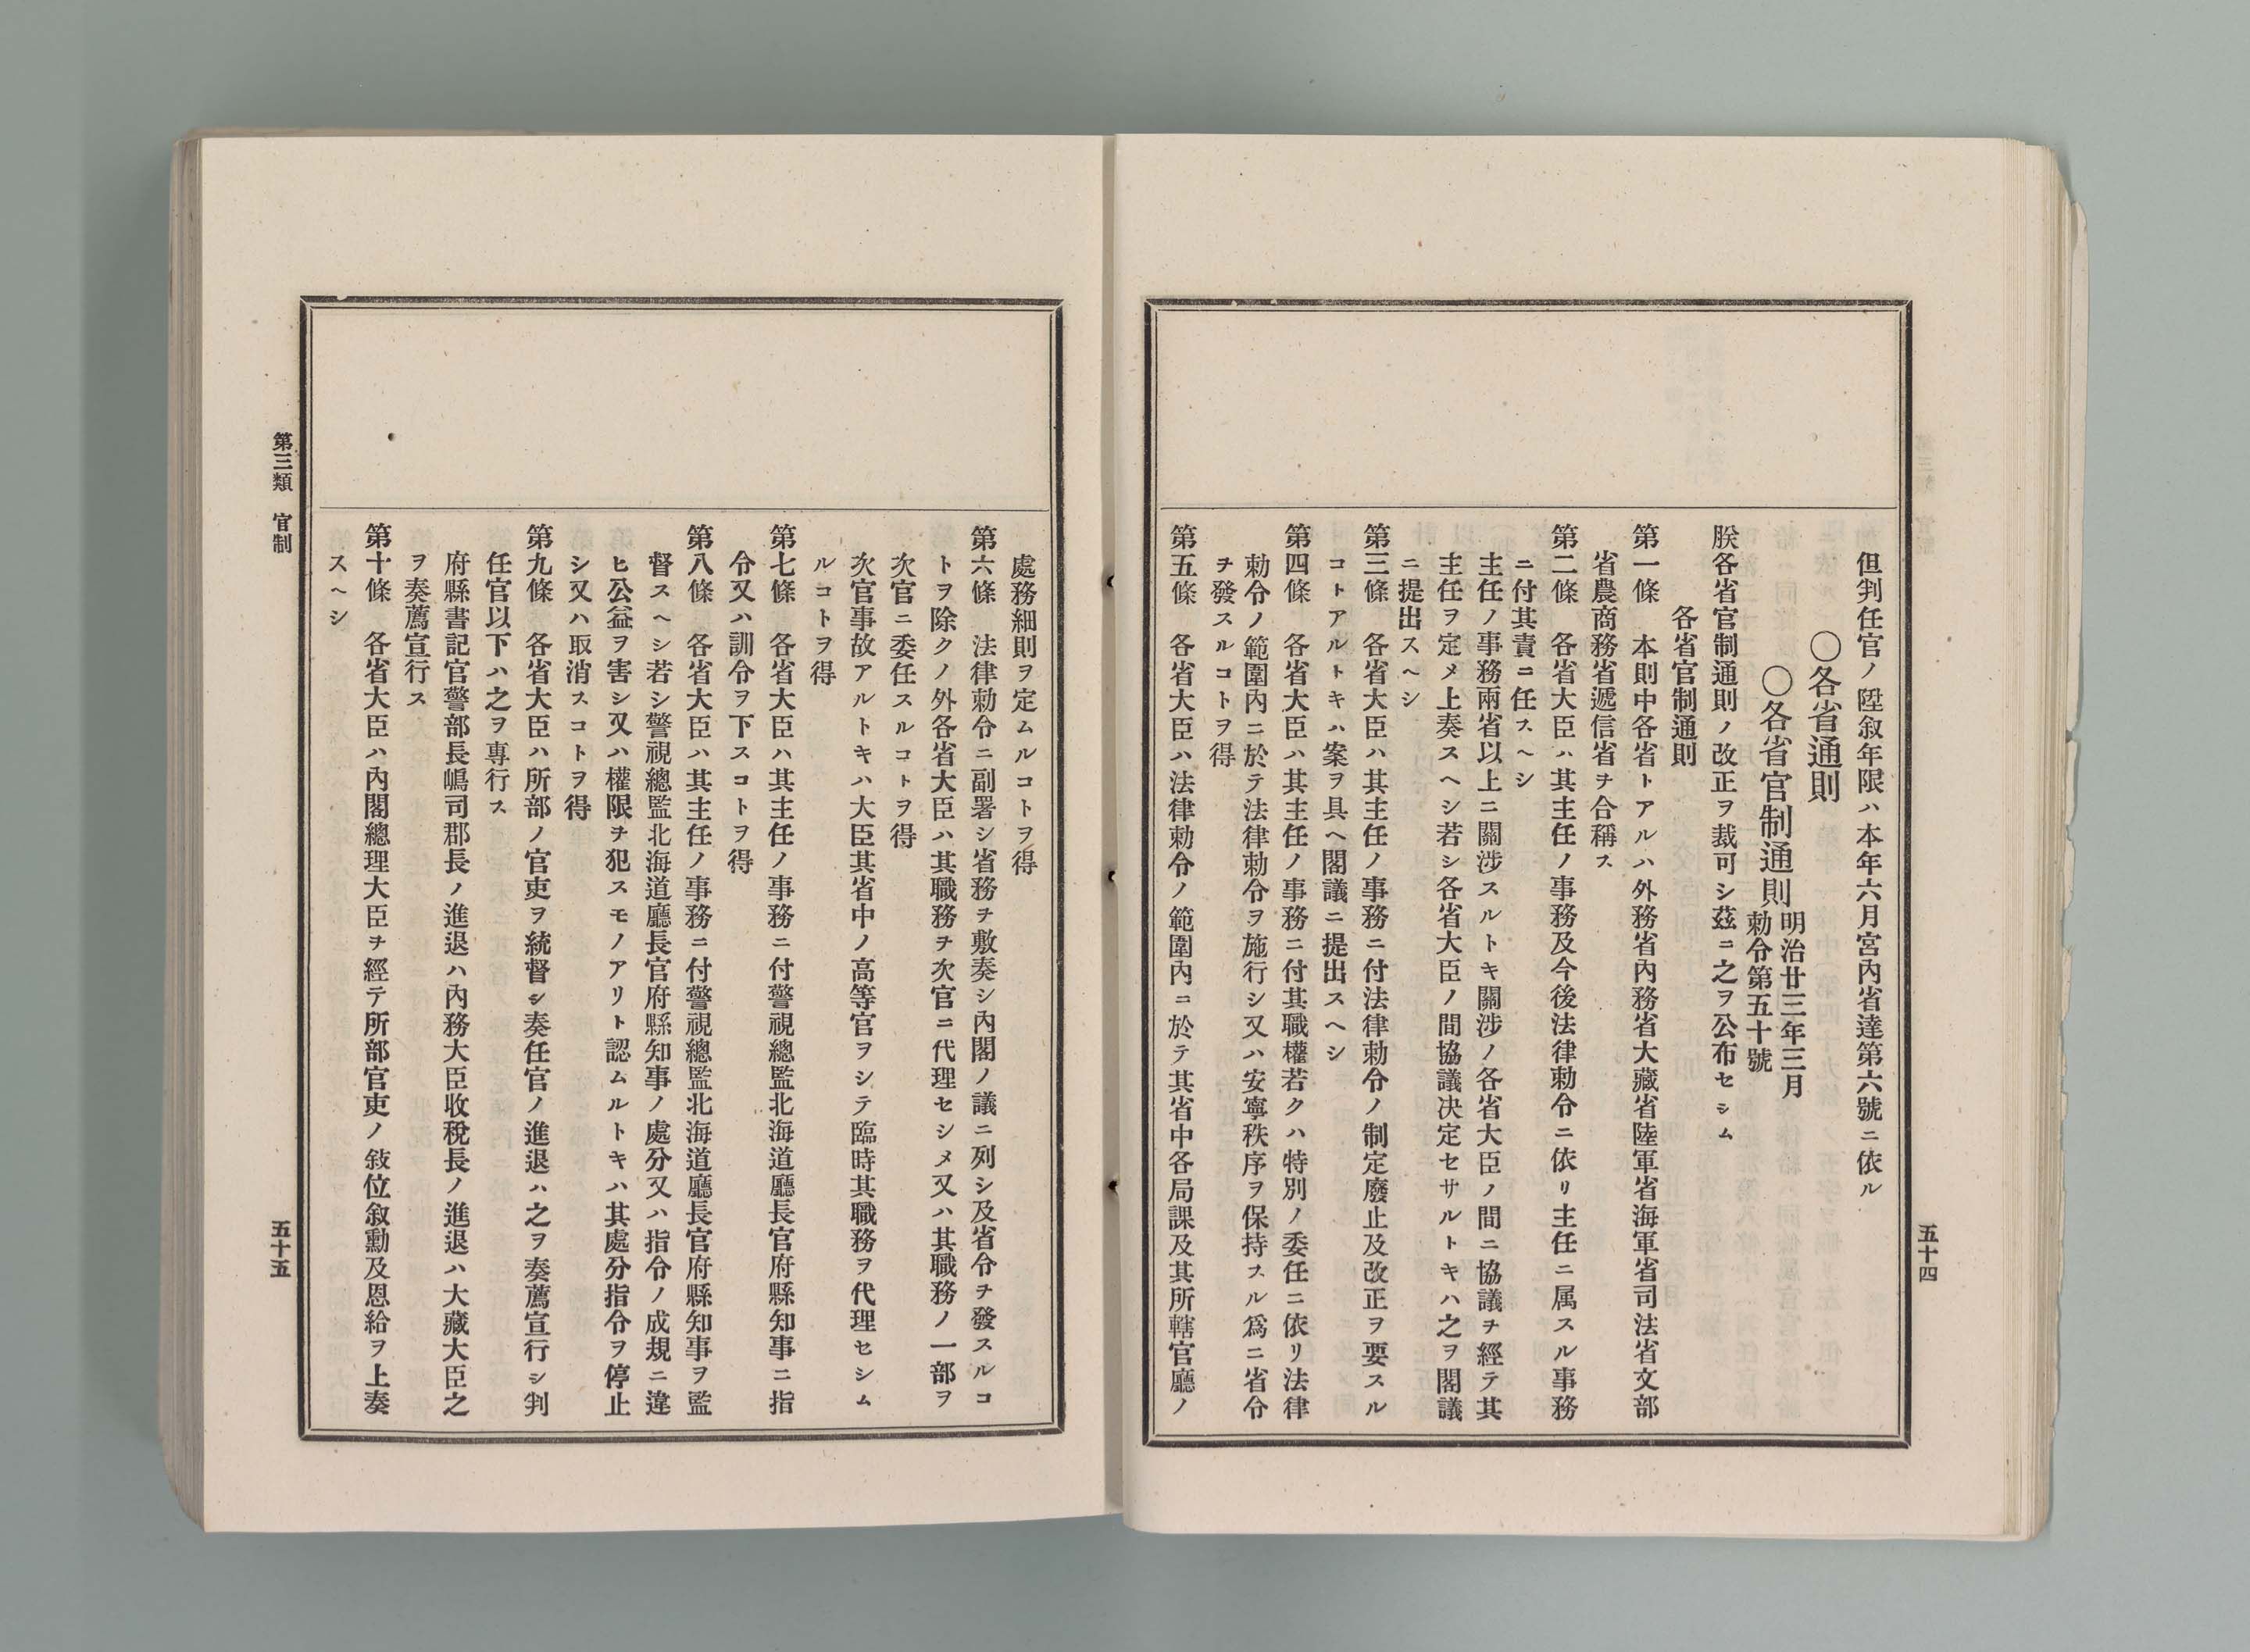 但判任官ノ陞叙年限ハ本年六月宮內省達第六號ニ依ル
〇各省通則
〇各省官制通則
明治廿三年三月
勅令第五十號
朕各省官制通則ノ改正ヲ裁可シ茲ニ之ヲ公布セシム
各省官制通則
第一條　本則中各省トアルハ外務省內務省大藏省陸軍省海軍省司法省文部
省農商務省遞信省ヲ合稱ス
第二條　各省大臣ハ其主任ノ事務及今後法律勅令ニ依リ主任ニ属スル事務
ニ付其責ニ任スヘシ
主任ノ事務兩省以上ニ關涉スルトキ關涉ノ各省大臣ノ間ニ協議ヲ經テ其
主任ヲ定メ上奏スヘシ若シ各省大臣ノ間協議決定セサルトキハ之ヲ閣議
ニ提出スヘシ
第三條　各省大臣ハ其主任ノ事務ニ付法律勅令ノ制定廢止及改正ヲ要スル
コトアルトキハ案ヲ具ヘ閣議ニ提出スヘシ
第四條　各省大臣ハ其主任ノ事務ニ付其職權若クハ特別ノ委任ニ依リ法律
勅令ノ範圍內ニ於テ法律勅令ヲ施行シ又ハ安寧秩序ヲ保持スル爲ニ省令
ヲ發スルコトヲ得
第五條　各省大臣ハ法律勅令ノ範圍內ニ於テ其省中各局課及其所轄官廳ノ
五十四
處務細則ヲ定ムルコトヲ得
第六條　法律勅令ニ副署シ省務ヲ敷奏シ內閣ノ議ニ列シ及省令ヲ發スルコ
トヲ除クノ外各省大臣ハ其職務ヲ次官ニ代理セシメ又ハ其職務ノ一部ヲ
次官ニ委任スルコトヲ得
次官事故アルトキハ大臣其省中ノ高等官ヲシテ臨時其職務ヲ代理セシム
ルコトヲ得
第七條　各省大臣ハ其主任ノ事務ニ付警視總監北海道廳長官府縣知事ニ指
令又ハ訓令ヲ下スコトヲ得
第八條　各省大臣ハ其主任ノ事務ニ付警視總監北海道廳長官府縣知事ヲ監
督スヘシ若シ警視總監北海道廳長官府縣知事ノ處分又ハ指令ノ成規ニ違
ヒ公益ヲ害シ又ハ權限ヲ犯スモノアリト認ムルトキハ其處分指令ヲ停止
シ又ハ取消スコトヲ得
第九條　各省大臣ハ所部ノ官吏ヲ統督シ奏任官ノ進退ハ之ヲ奏薦宣行シ判
任官以下ハ之ヲ専行ス
府縣書記官警部長嶋司郡長ノ進退ハ內務大臣收稅長ノ進退ハ大藏大臣之
ヲ奏薦宣行ス
第十條　各省大臣ハ內閣總理大臣ヲ經テ所部官吏ノ敍位叙勳及恩給ヲ上奏
スヘシ
第三類　官制
五十五